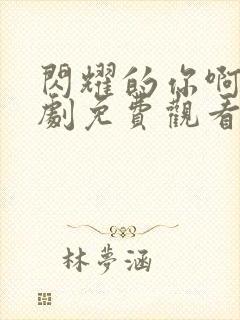 閃耀的你啊
劇免費觀看
林夢涵